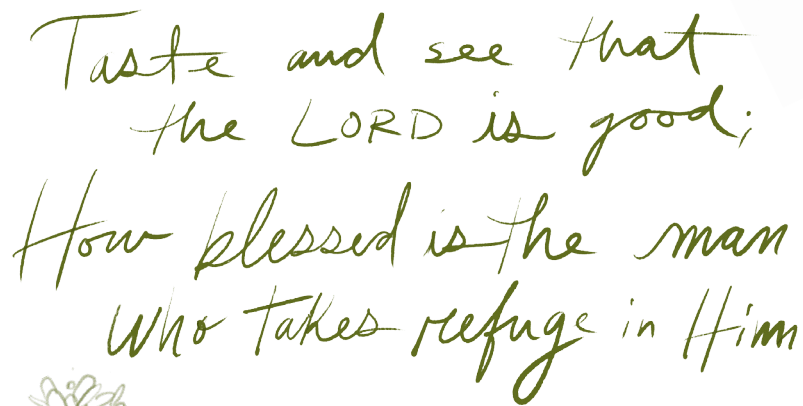 Taste and see that
the LORD is good;
How blessed is the man
who takes refuge in Him